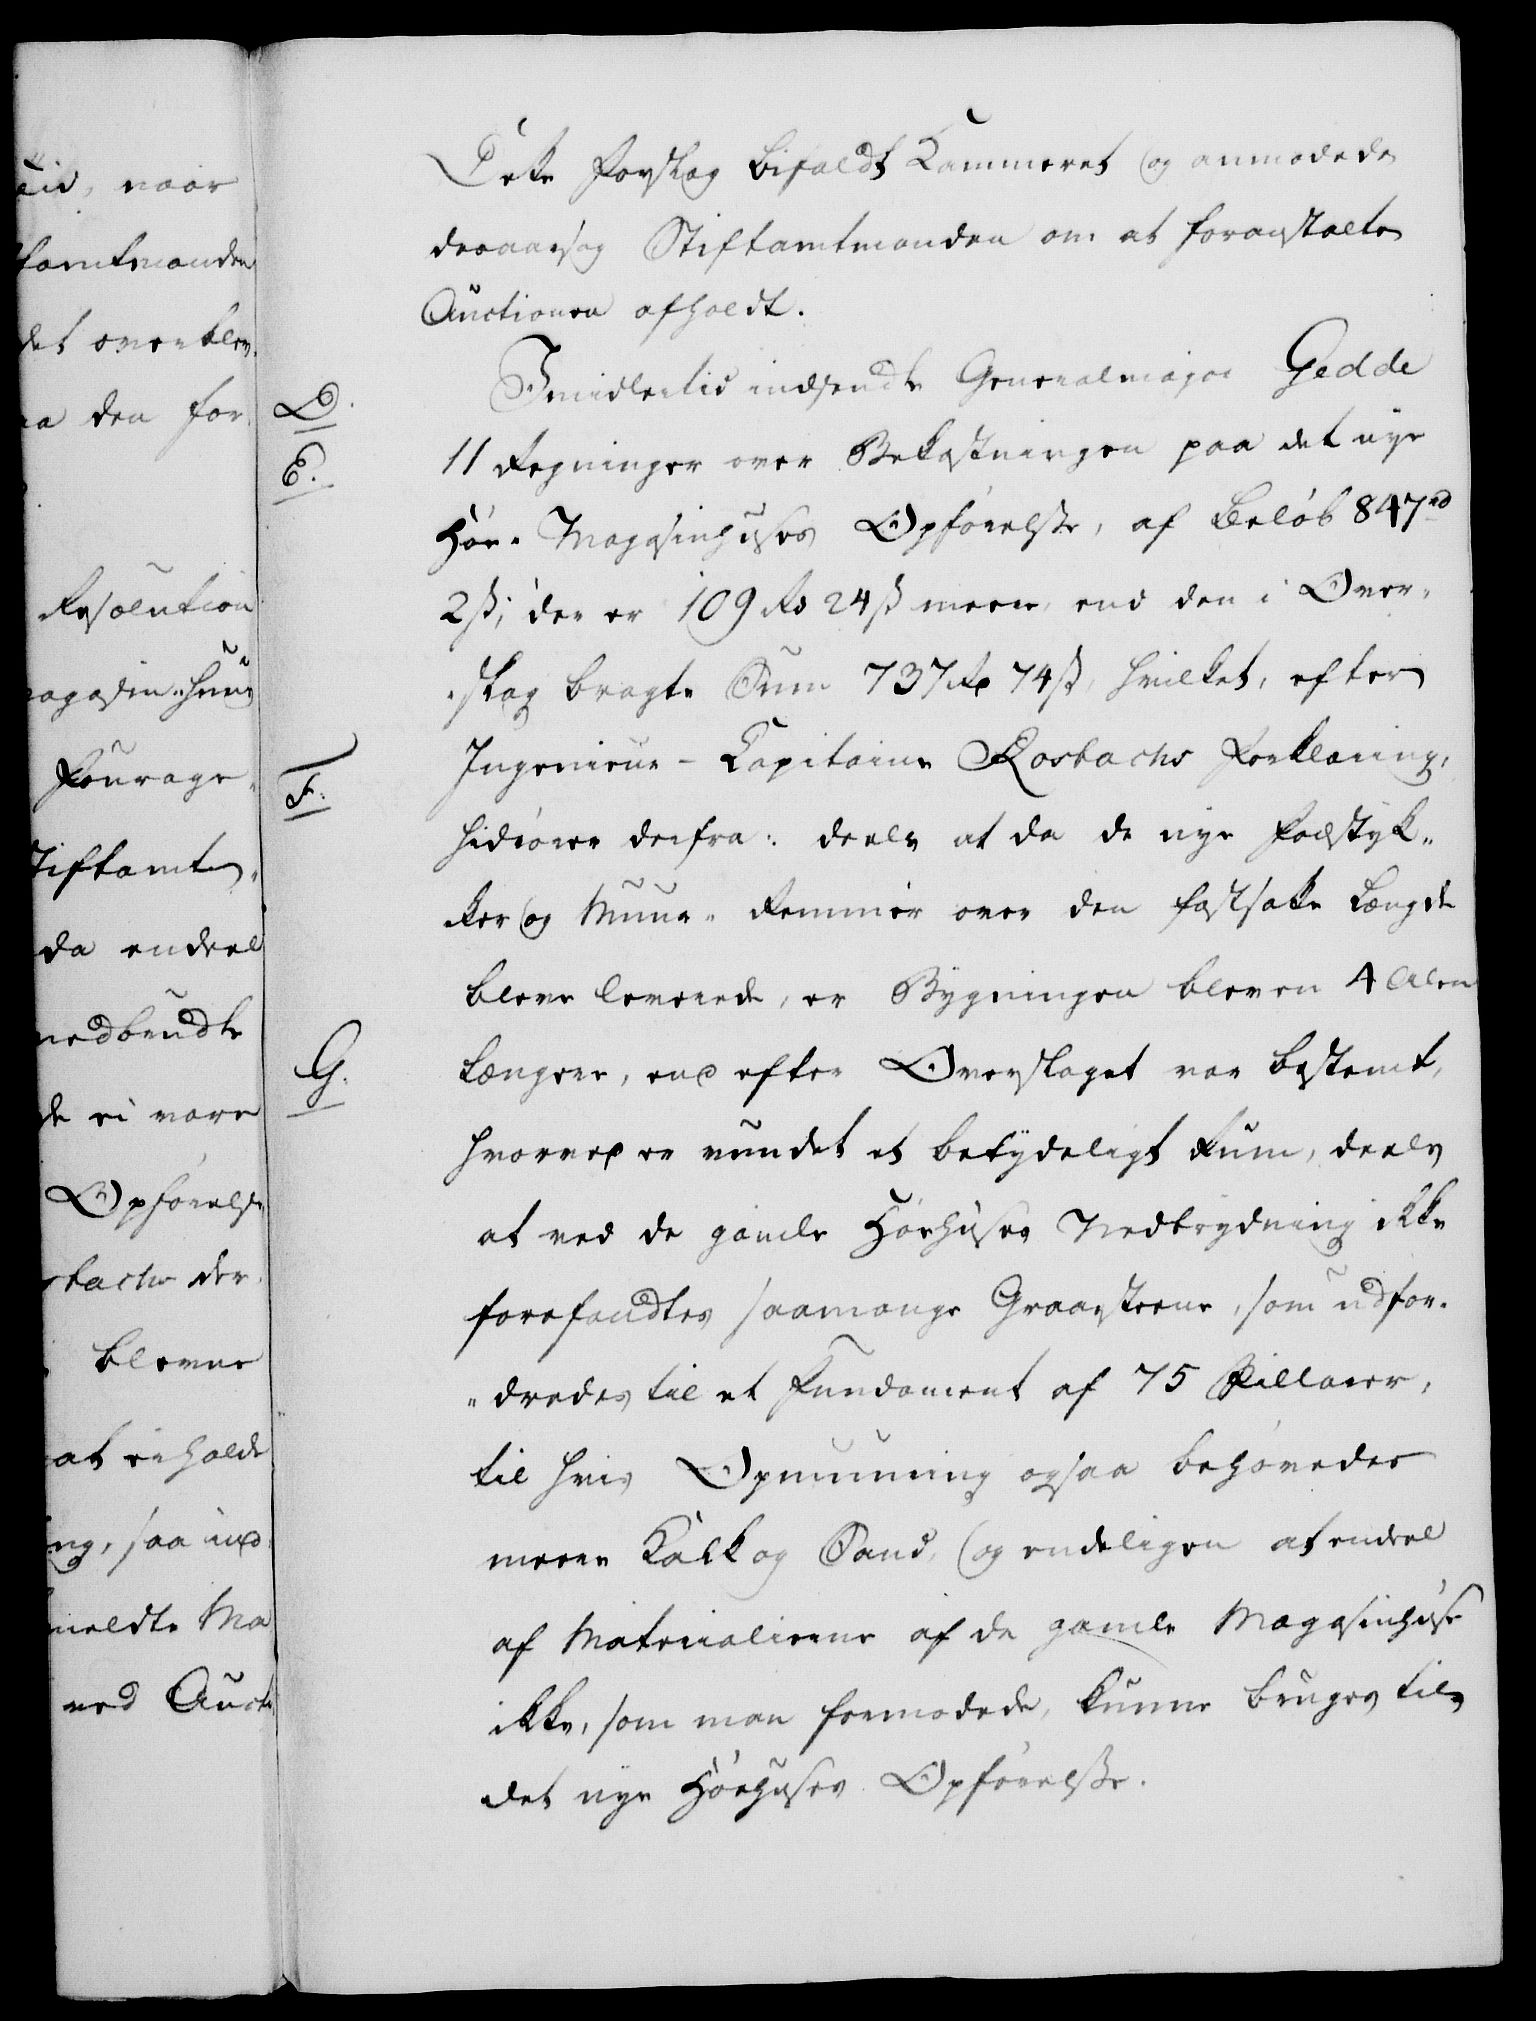 Dette Forslag bifaldt Kammeret og anmodede
desaarsag Stiftamtmanden om at foranstalte
Auctionen afholdt.
D. Imidlertid indsendte Generalmajor Gedde
E. 11 Regninger over Bekostningen paa det nye
Höe- Magasinhuses Opförelse, af Belöb 847 rd
2 ß; der er 109 Rd 24 ß meere, end den i Over-
-slag bragte Sum 737 Rd 74 ß, hvilket, efter
F. Ingenieur-Capitaine Rosbachs Forklaring,
hidrörer derfra: deels at da de nye Fodstyk-
ker og Muur-Remmer over den fastsatte Længde
bleve leverede, er Bygningen bleven 4 Alen
G. længere, end efter Overslaget var bestemt,
hvorved er vundet et betydeligt Rum, deels
at ved de gamle Höehuses Nedbrydning ikke
forefandtes saamange Graasteene, som udfor-
-dredes til et Fundament af 75 Pillarer,
til hvis Opmuuring ogsaa behövedes
meere Kalk og Sand, og endeligen at endeel
af Materialierne af de gamle Magasinhuse
ikke, som man formodede, kunne bruges til
det nye Höehuses Opförelse.
naar
tamtmanden
det overblev-
den for-
Resolution
magasin-Huus
Fourage-
Stiftamt-
da endeel
nedbrudte
de ei vare
Opförelse
sbachs der-
blevne
at erholde
ng, saa ind-
meldte Ma
ved Aucti